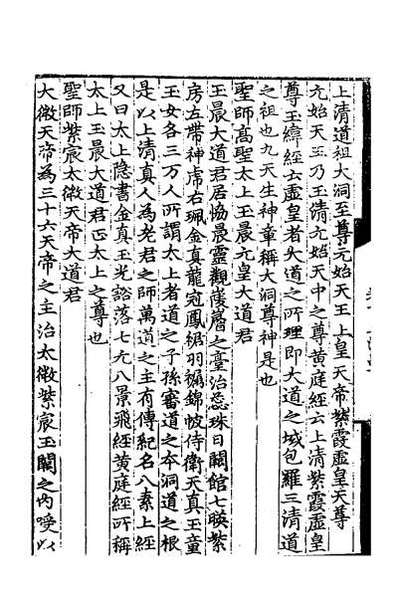 上清道祖大洞至尊元始天王上皇天帝紫霞虛皇天尊
元始天王乃玉清元始天中之尊黄庭經云上清紫霞虛皇
尊玉緯經云虛皇者大道之所理即大道之域包羅三清道
之祖也九天生神章稱大洞尊神是也
聖師高聖太上玉晨元皇大道君
玉晨大道君居協晨靈觀㠑之臺治蕊珠日闕館七暎紫
房左帶神虎右珮金真龍冠鳳裙羽褊錦帔侍衛天真玉童
玉女各三万人所謂太上者道之子孫審道之夲洞道之根
是以上清真人為老君之師萬道之主有傳紀名八素上經
又曰太上隐書金真玉光豁落七元八景飛經黄庭經所稱
太上玉晨大道君正太上之尊也
聖師紫宸太微天帝大道君
大微天帝為三十六天帝之主治太微紫宸玉闕之内嘤以